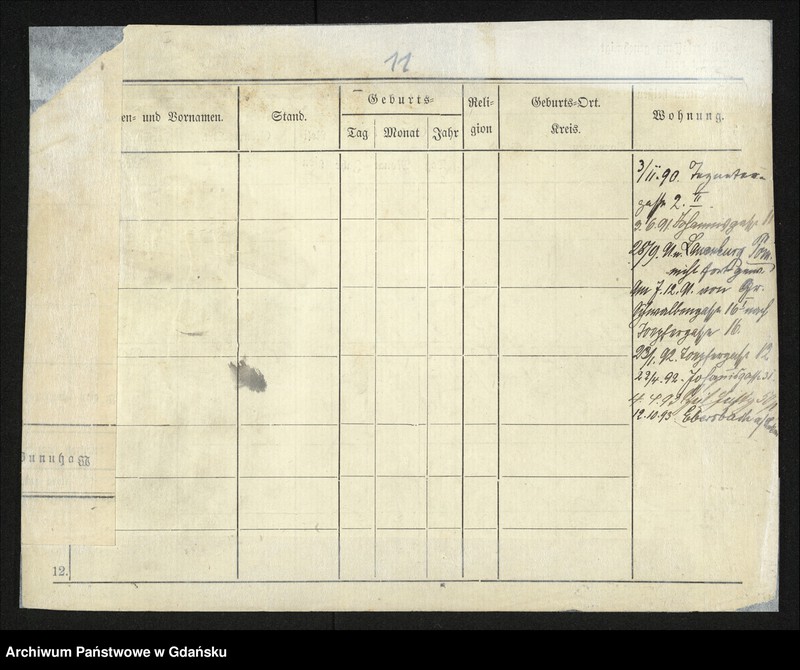 11
en- und Vornamen.
Stand.
Geburts-
Tag
Monat
Jahr
Reli-
gion
Geburts-Ort.
Kreis.
Wohnung.
3/II.90.
gasse 2. II
3.6.91. Johannisgasse 11
28/9. 91. n. Lauenburg Pom.
nicht fort gem.
Am 7.12.91. von Gr.
Schwalbengasse 16 nach
Töpfergasse 16.
23/1. 92. Töpfergasse 12
23/4. 92. Johannisgasse 31
4. 4. 93
12.10.93 Ebersbach
Wohnung
12.
Archiwum Państwowe w Gdańsku